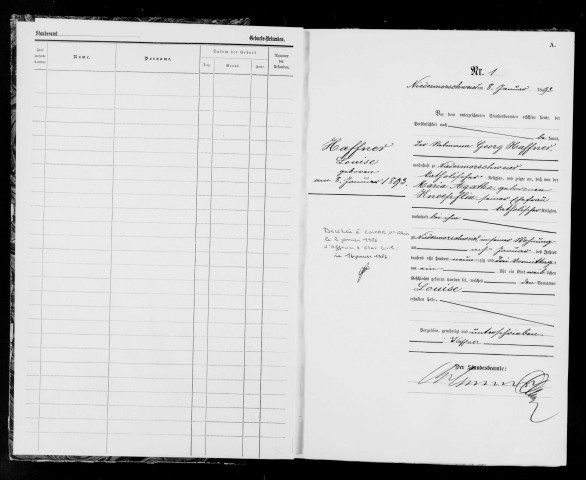 Standesamt
Geburts-Urkunden.
Name.
Vorname.
Datum der Geburt
Tag.
Monat
Jahr.
Nummer
der
Urkunden.
A.
Nr. 1
Niedermorschweier 8. Januar 1893.
Vor dem unterzeichneten Standesbeamten erschien heute, der
Persönlichkeit nach
be kannt,
Der Rebmann Georg Haffner,
wohnhaft zu Niedermorschweier
katholischer Religion, und zeigte an, daß von der
Maria Agatha, geborenen
Knoepflin, seiner Ehefrau
katholischer Religion,
wohnhaft bei ihm
zu Niedermorschweier in seiner Wohnung
am acht Januar des Jahres
tausend acht hundert neunzig und drei Vormittags
um ein Uhr ein Kind weiblichen
Geschlechts geboren worden sei, welches den Vornamen
Louise
erhalten habe.
Vorgelesen, genehmigt und unterschrieben
Haffner
Der Standesbeamte:
Haffner
Louise
geboren
am 8. Januar 1893.
Décédée à
le 2 janvier 1986
L'officier d'état civil
le 16 janvier 1986